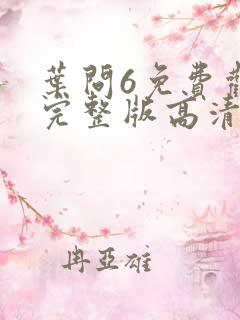 葉問6免費觀
完整版高清
冉亞雄